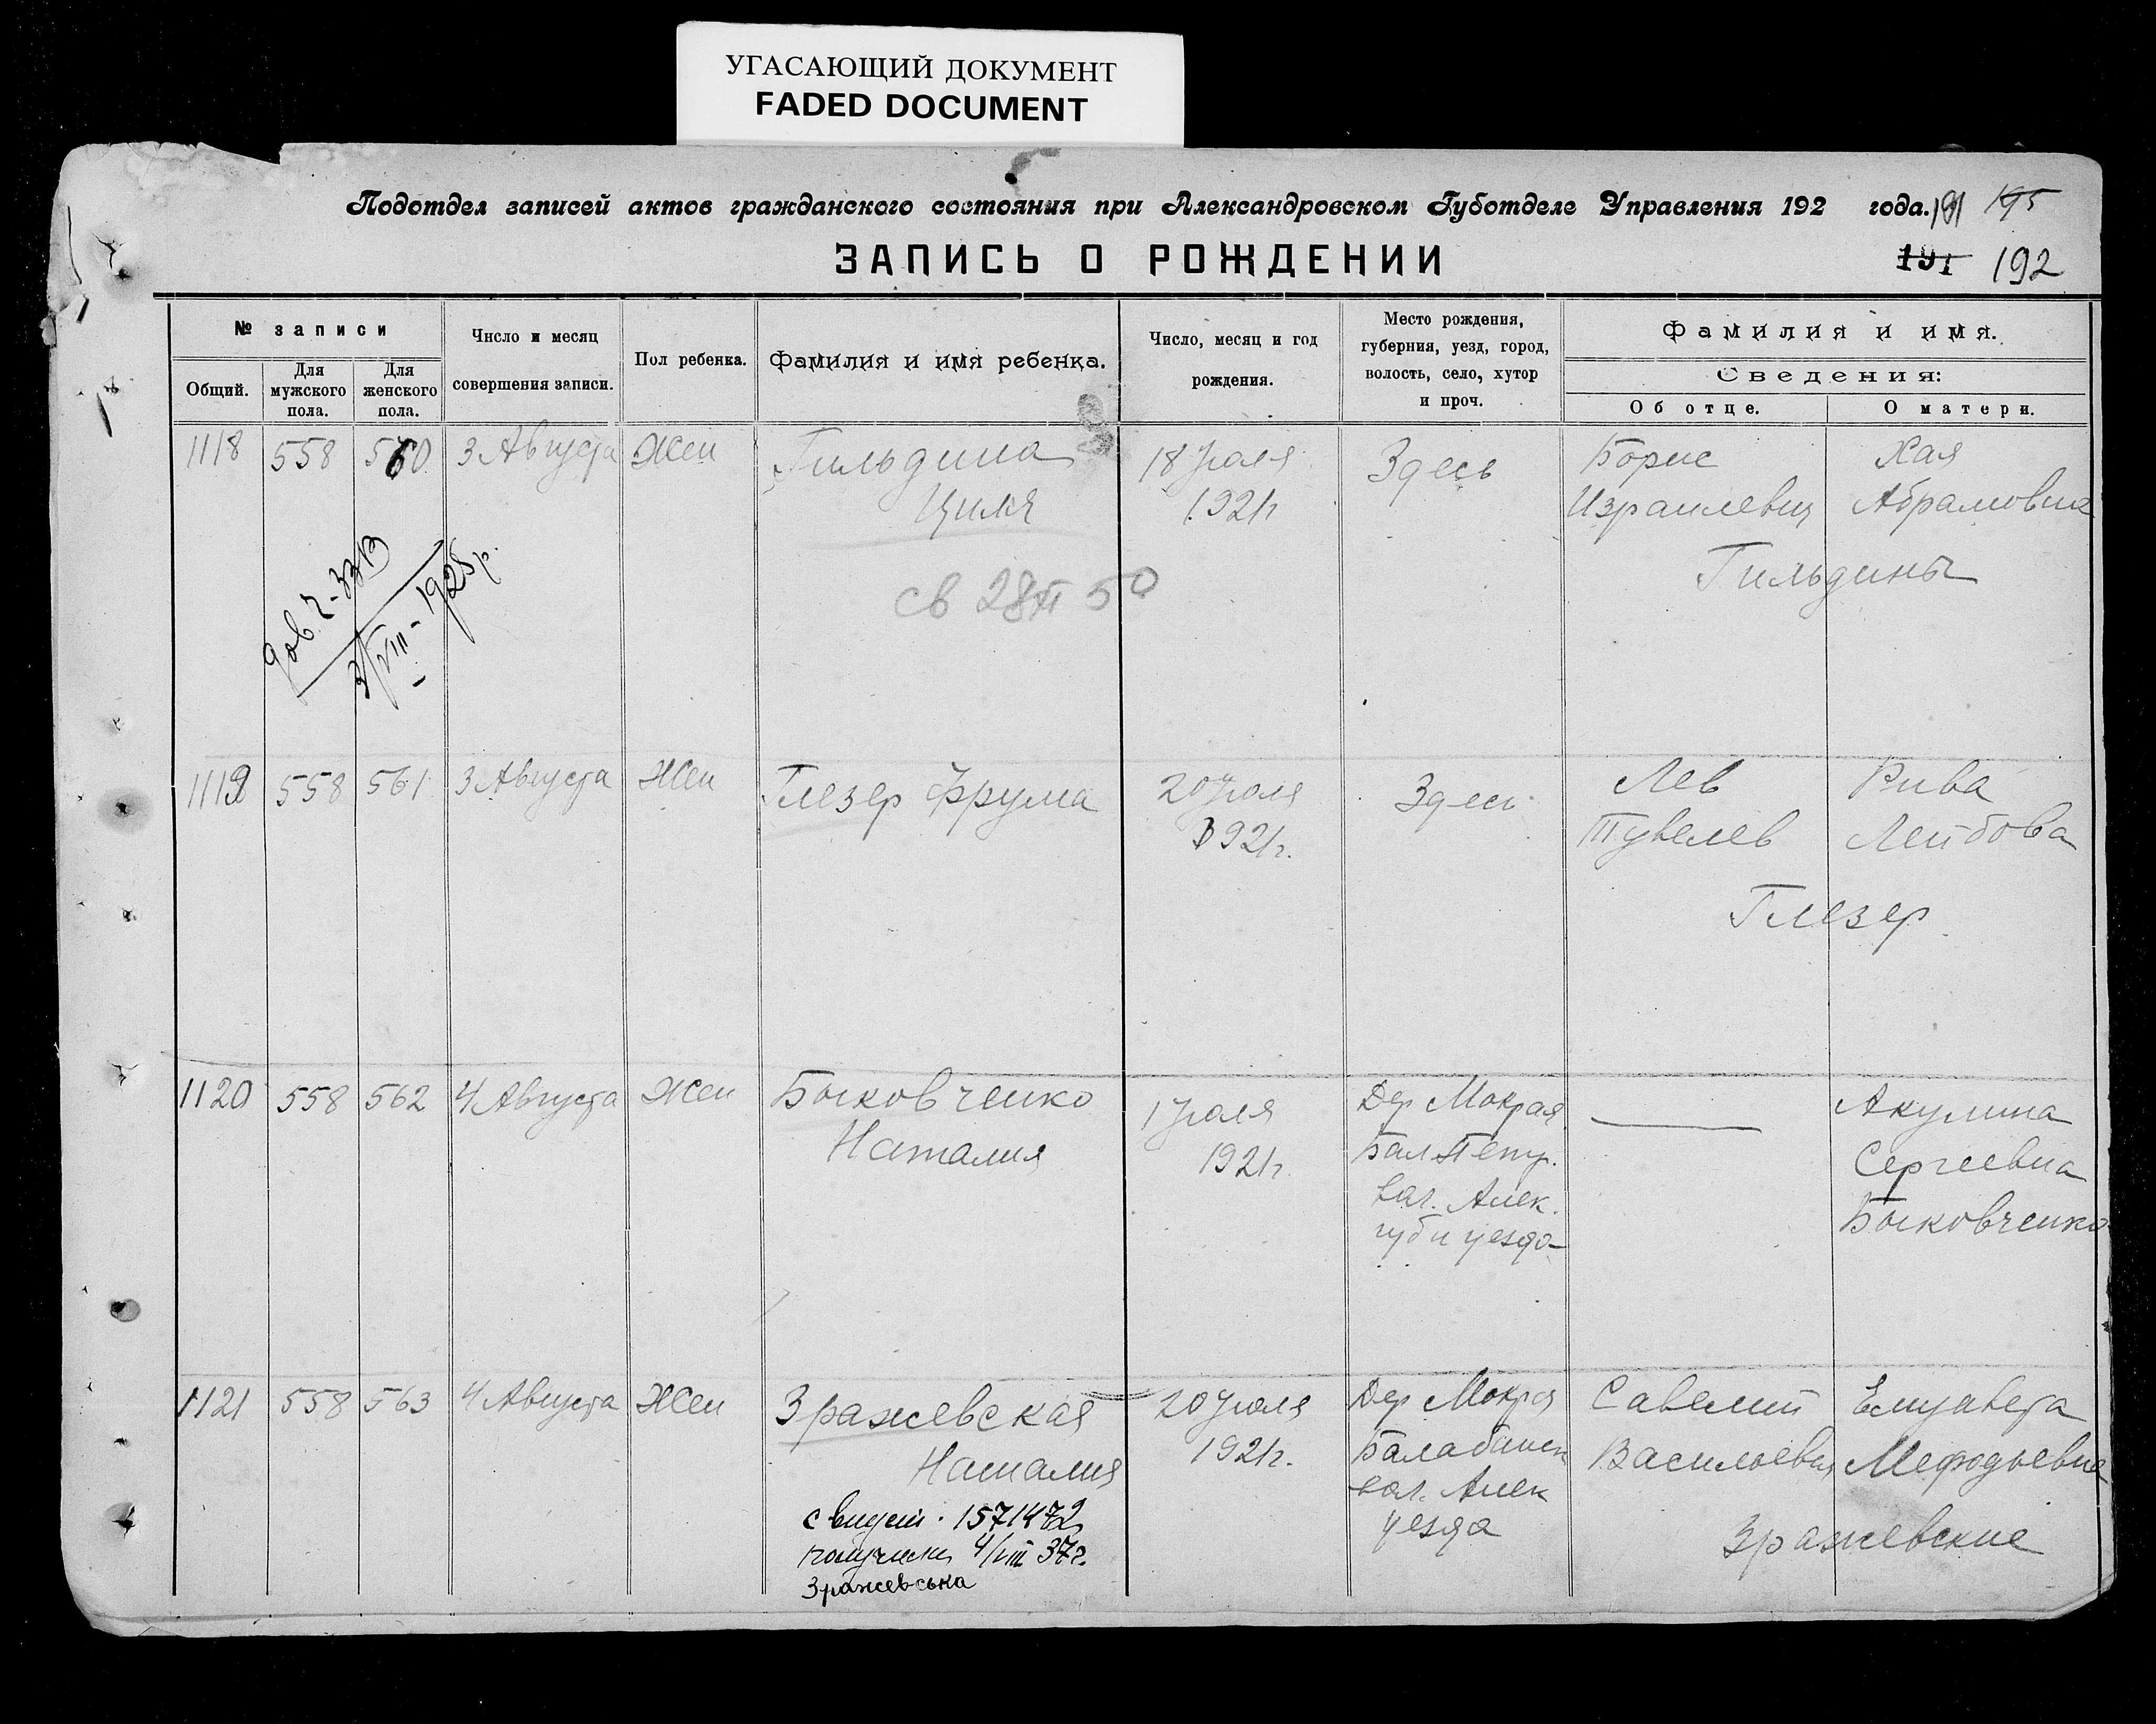 УГАСАЮЩИЙ ДОКУМЕНТ
FADED DOCUMENT
Подотдел записей актов гражданского состояния при Александровском Губотделе Управления 192 года. 191 195
ЗАПИСЬ О РОЖДЕНИИ 191 192
№ записи
Общий.
Для мужского пола.
Для женского пола.
Число и месяц совершения записи.
Пол ребенка.
Фамилия и имя ребенка.
Число, месяц и год рождения.
Место рождения, губерния, уезд, город, волость, село, хутор и проч.
Фамилия и имя.
Сведения:
Об отце.
О матери.
1118 558 560 3 Августа Жен Гильдина 18 Июля Здесь Борис Хая
Циля 1921г Израилевич Абрамовна
Гильдины
св 28 XI 50
Дов. Ч-
VIII-1928р.
1119 558 561 3 Августа Жен Глезер Фрума 20 Июля Здесь Лев Рива
1921г. Тувелев Лейбова
Глезер
1120 558 562 4 Августа Жен Быковченко 1 Июля Дер Мокрая Акулина
Наталия 1921г. Бал Петр. Сергеевна
вол. Алек. Быковченко
губ и уезда
1121 558 563 4 Августа Жен Зражевская 20 Июля Дер Мокрая Савелий Елизавета
Наталия 1921г. Балабинск Васильевич Мефодьевна
вол. Алек
уезда Зражевские
свидет. 1571472
получила 4/VIII 37г.
Зражевська